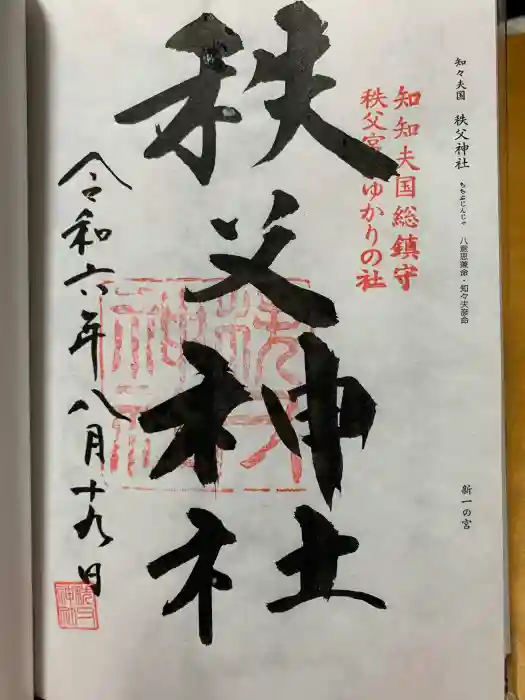 知々夫国 秩父神社 ちちぶじんじゃ 八意思兼命・知々夫彦命
新一の宮
知知夫国総鎮守
秩父宮ゆかりの社
秩父神社
令和六年八月十九日
秩父神社